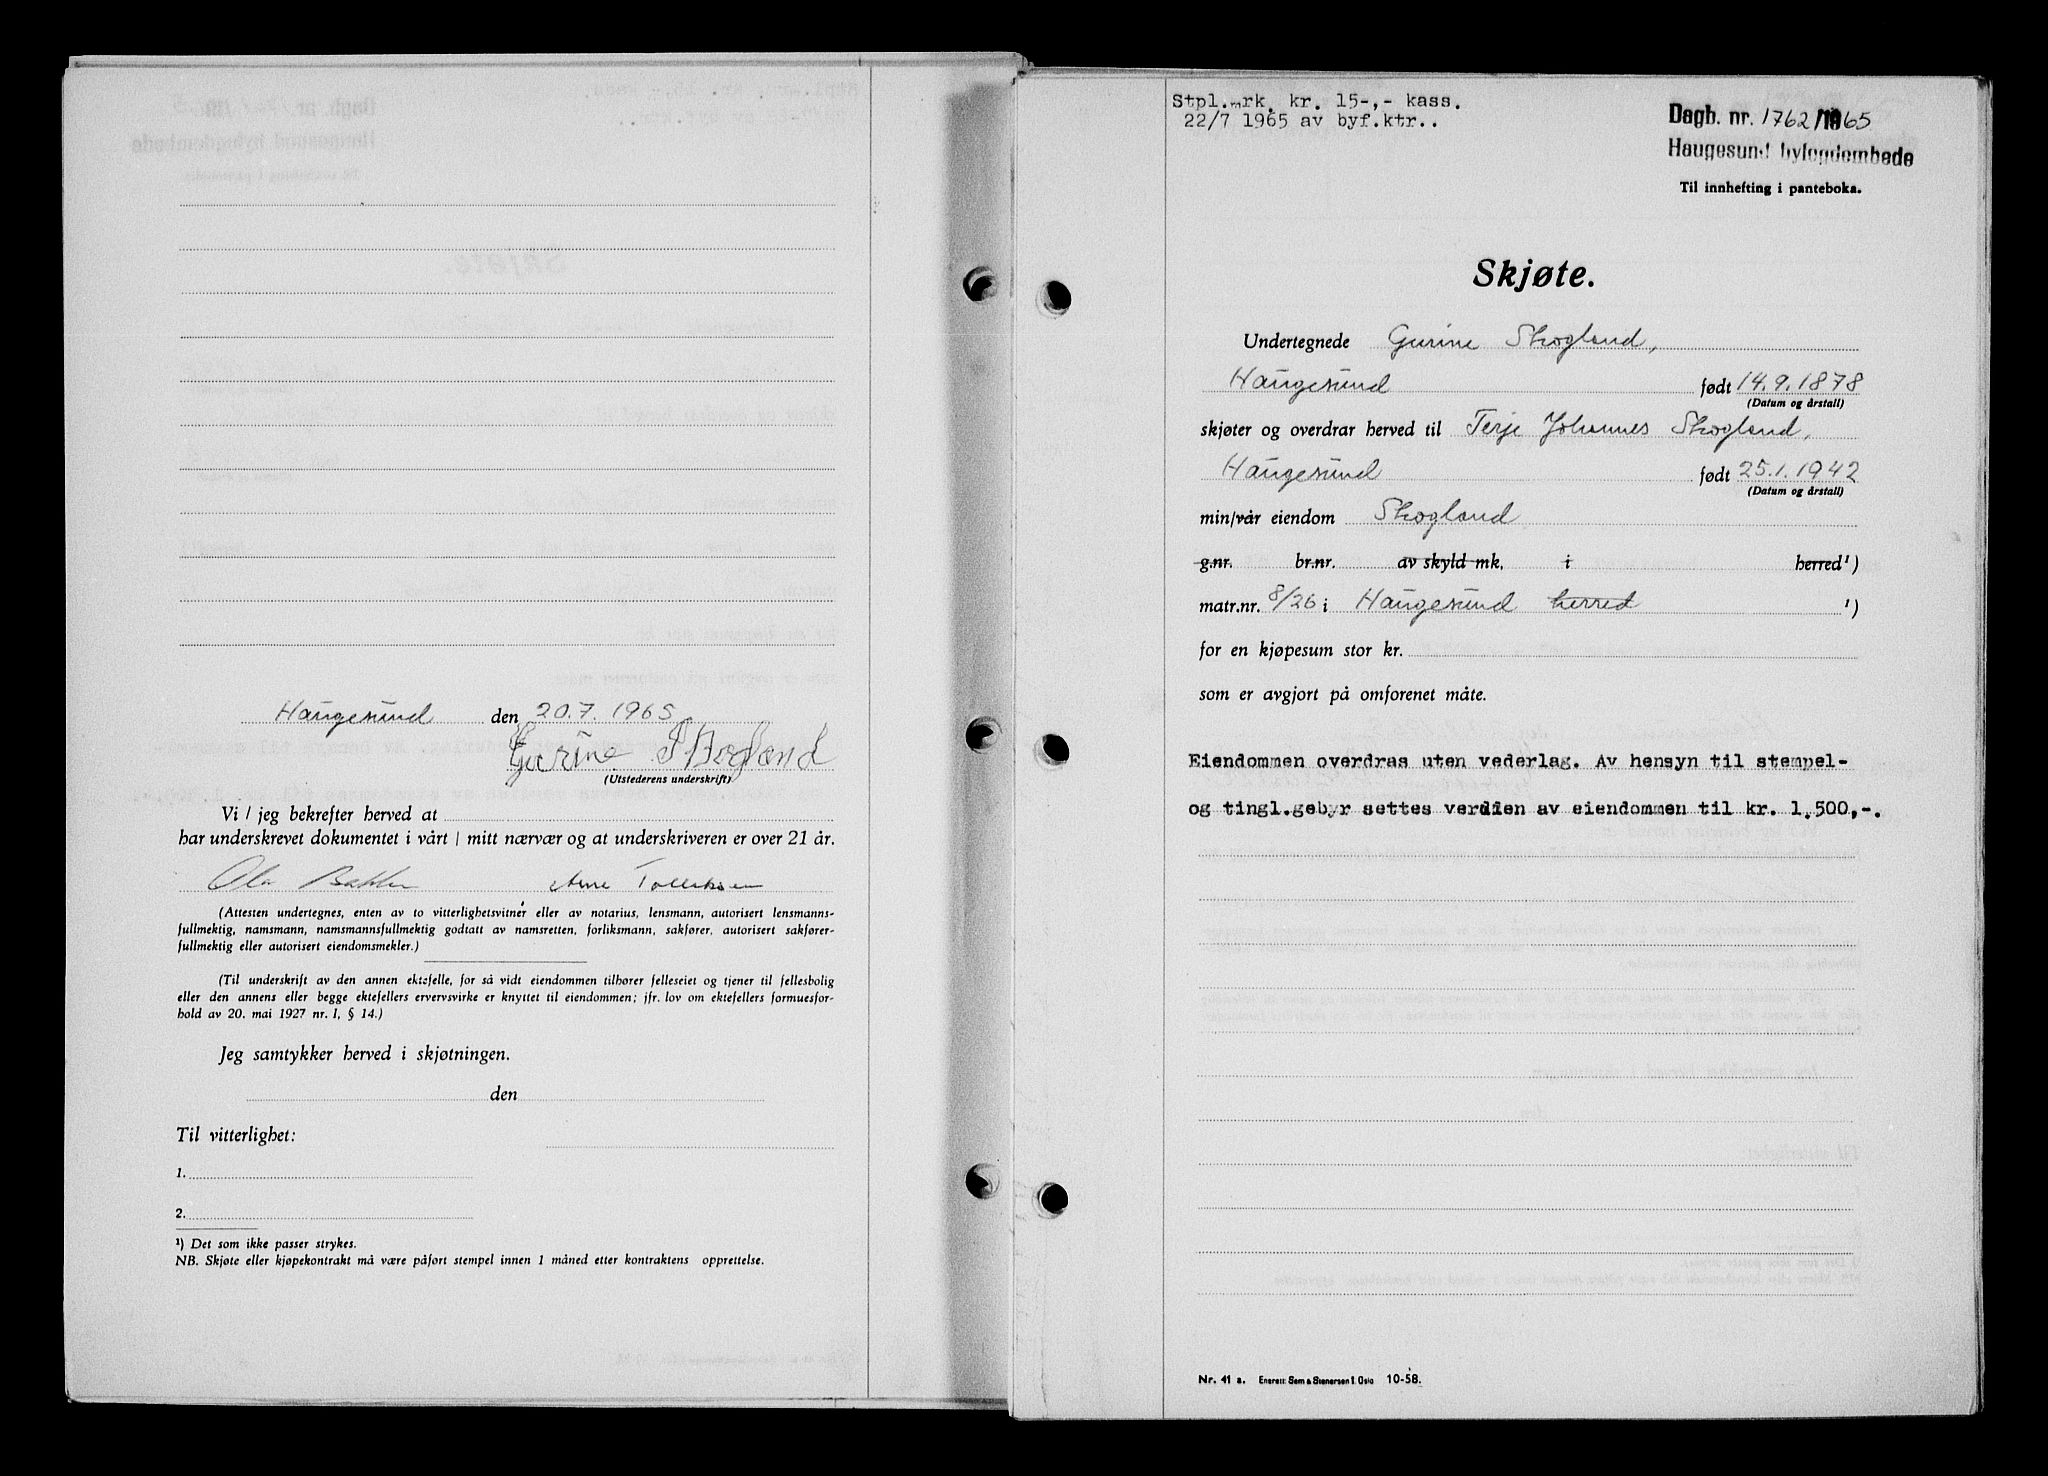 Haugesund den 20.7.1965
Gurine Skogland
(Utstederens underskrift)
Vi / jeg bekrefter herved at
har underskrevet dokumentet i vårt / mitt nærvær og at underskriveren er over 21 år.
Ola Arne
(Attesten undertegnes, enten av to vitterlighetsvitner eller av notarius, lensmann, autorisert lensmanns-
fullmektig, namsmann, namsmannsfullmektig godtatt av namsretten, forliksmann, sakfører, autorisert sakfører-
fullmektig eller autorisert eiendomsmekler.)
(Til underskrift av den annen ektefelle, for så vidt eiendommen tilhører felleseiet og tjener til fellesbolig
eller den annens eller begge ektefellers ervervsvirke er knyttet til eiendommen; jfr. lov om ektefellers formuesfor-
hold av 20. mai 1927 nr. 1, § 14.)
Jeg samtykker herved i skjøtningen.
den
Til vitterlighet:
1.
2.
¹) Det som ikke passer strykes.
NB. Skjøte eller kjøpekontrakt må være påført stempel innen 1 måned etter kontraktens opprettelse.
Stpl.mrk. kr. 15-,- kass.
22/7 1965 av byf.ktr..
Dagb. nr. 1762/1965
Haugesund byfogdembede
Til innhefting i panteboka.
Skjøte.
Undertegnede Gurine Skogland,
Haugesund født 14.9.1878
(Datum og årstall)
skjøter og overdrar herved til Terje Johannes Skogland,
Haugesund født 25.1.1942
(Datum og årstall)
min/vår eiendom Skogland
g.nr. br.nr. av skyld mk. i herred¹)
matr.nr. 8/26 i Haugesund herred ¹)
for en kjøpesum stor kr.
som er avgjort på omforenet måte.
Eiendommen overdras uten vederlag. Av hensyn til stempel-
og tingl.gebyr settes verdien av eiendommen til kr. 1.500,-.
Nr. 41 a. Enerett: Sem & Stenersen ⅟. Oslo 10-58.